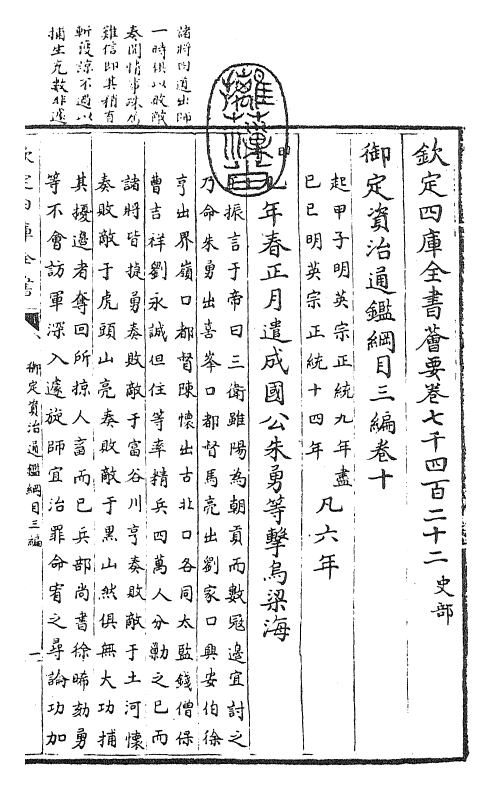 欽定四庫全書薈要卷七千四百二十二 史部
御定資治通鑑綱目三編卷十
起甲子明英宗正統九年盡
己巳明英宗正統十四年
凡六年
年春正月遣成國公朱勇等擊烏梁海
振言于帝曰三衛雖陽為朝貢而數寇邊宜討之
乃命朱勇出喜峯口都督馬亮出劉家口興安伯徐
亨出界嶺口都督陳懷出古北口各同太監錢僧保
曹吉祥劉永誠但住等率精兵四萬人分勦之已而
諸將皆捷勇奏敗敵于富谷川亨奏敗敵于土河懷
奏敗敵于虎頭山亮奏敗敵于黑山然俱無大功捕
其擾邊者奪回所掠人畜而已兵部尚書徐晞劾勇
等不會訪軍深入遽旋師宜治罪命宥之尋論功加
諸將四道出師
一時俱以敗敵
奏聞情事殊為
難信即其稍有
斬獲諒不過以
捕生充數非遽
欽定四庫全書
御定資治通鑑綱目三編
一